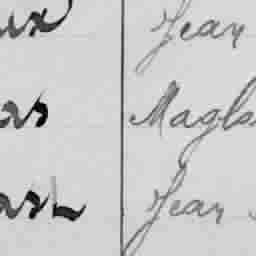 ux Jean
as Magla
as Jean